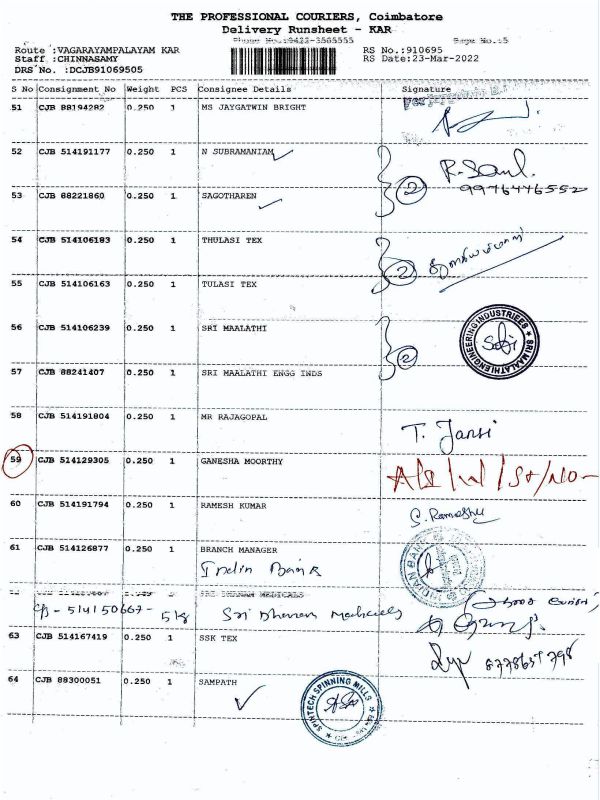 THE PROFESSIONAL COURIERS, Coimbatore
Delivery Runsheet - KAR
Phone No.:0422-3505555 Page No.:5
Route :VAGARAYAMPALAYAM KAR RS No.:910695
Staff :CHINNASAMY RS Date:23-Mar-2022
DRS No. :DCJB91069505
S No Consignment No Weight PCS Consignee Details Signature
51 CJB 88194282 0.250 1 MS JAYGATWIN BRIGHT
52 CJB 514191177 0.250 1 N SUBRAMANIAM
2
9976446552
53 CJB 88221860 0.250 1 SAGOTHAREN
54 CJB 514106183 0.250 1 THULASI TEX
2
55 CJB 514106163 0.250 1 TULASI TEX
56 CJB 514106239 0.250 1 SRI MAALATHI
SRI MAALATHI ENGINEERING INDUSTRIEES
2
57 CJB 88241407 0.250 1 SRI MAALATHI ENGG INDS
58 CJB 514191804 0.250 1 MR RAJAGOPAL
T. Jansi
59 CJB 514129305 0.250 1 GANESHA MOORTHY
60 CJB 514191794 0.250 1 RAMESH KUMAR
61 CJB 514126877 0.250 1 BRANCH MANAGER
Indin Bank
INDIAN BANK
SRI DHARAM MEDICALS
514150667 - Sri Dharam Medicals
63 CJB 514167419 0.250 1 SSK TEX
64 CJB 88300051 0.250 1 SAMPATH
SPINTECH SPINNING MILLS